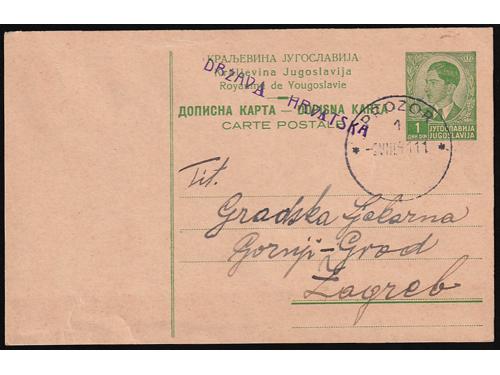 КРАЉЕВИНА ЈУГОСЛАВИЈА
Kraljevina Jugoslavija
Royaume de Yougoslavie
DRŽAVA HRVATSKA
ДОПИСНА КАРТА — DOPISNA KARTA
CARTE POSTALE
PROZOR
1
1
ДИН DIN
ЈУГОСЛАВИЈА
JUGOSLAVIJA
Tit.
Gradska Ljekarna
Gornji-Grad
Zagreb